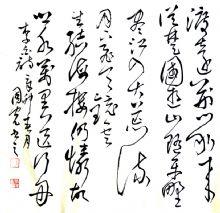 渡远荆门外来
从楚国游山随平野
尽江入大荒流
月下飞天镜云
生结海楼仍怜故
乡水万里送行舟